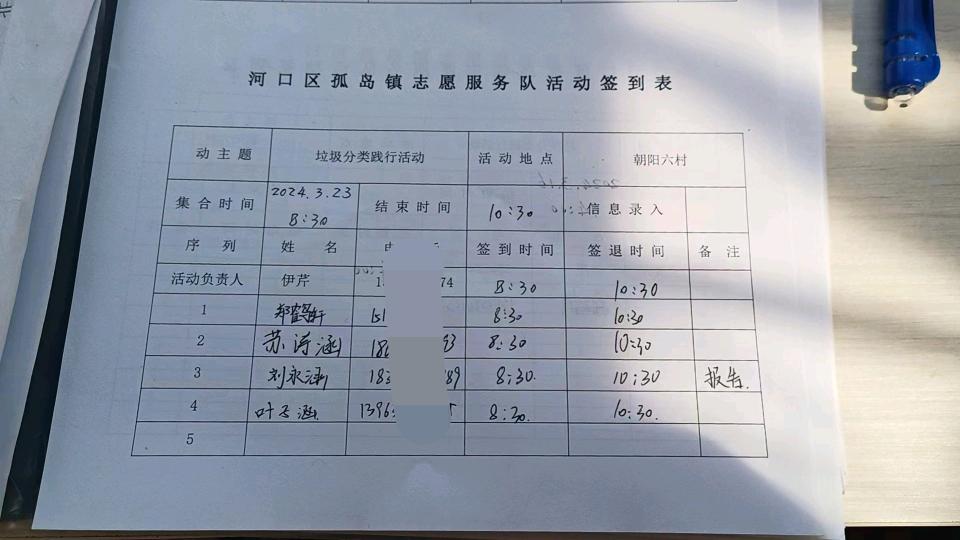 河口区孤岛镇志愿服务队活动签到表
动主题 垃圾分类践行活动 活动地点 朝阳六村
集合时间 2024.3.23 8:30 结束时间 10:30 信息录入
序列 姓名 签到时间 签退时间 备注
活动负责人 伊芹 1 74 8:30 10:30
1 郑鹤轩 151 8:30 10:30
2 苏诗涵 18 93 8:30 10:30
3 刘永涵 183 89 8:30. 10:30 报告.
4 叶子涵 1396 8:30. 10:30.
5